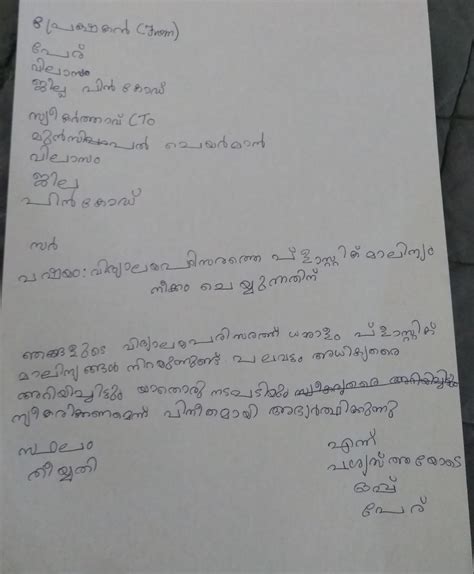 പ്രേഷകൻ (from)
പേര്
വിലാസം
ജില്ല പിൻകോഡ്
സ്വീകർത്താവ് (To
മുൻസിപ്പൽ ചെയർമാൻ
വിലാസം
ജില്ല
പിൻകോഡ്
സർ
വിഷയം: വിദ്യാലയപരിസരത്തെ പ്ളാസ്റ്റിക് മാലിന്യം
നീക്കം ചെയ്യുന്നതിന്
ഞങ്ങളുടെ വിദ്യാലയപരിസരത്ത് ധാരാളം പ്ളാസ്റ്റിക്
മാലിന്യങ്ങൾ നിറയുന്നുണ്ട്. പലവട്ടം അധികൃതരെ
അറിയിച്ചിട്ടും യാതൊരു നടപടിയും
സ്വീകരിക്കണമെന്ന് വിനീതമായി അഭ്യർത്ഥിക്കുന്നു
സ്ഥലം
തീയ്യതി
എന്ന്
വിശ്വസ്തതയോടെ
ഒപ്പ്
പേര്